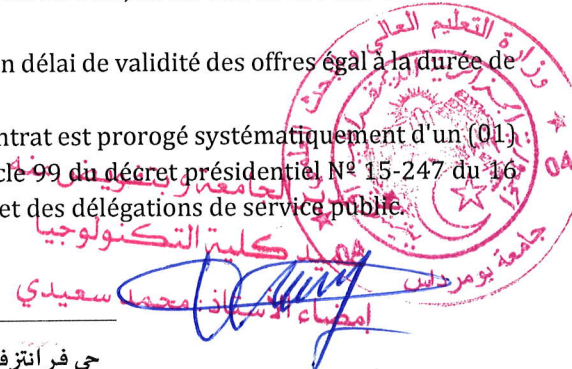 n délai de validité des offres égal à la durée de
ntrat est prorogé systématiquement d'un (01)
cle 99 du décret présidentiel Nº 15-247 du 16
et des délégations de service public.
وزارة التعليم العالي و البحث
جامعة بومرداس
04
04
الجامعة وبتفويض منه
عميد كلية التكنولوجيا
إمضاء الأستاذ: محمد سعيدي